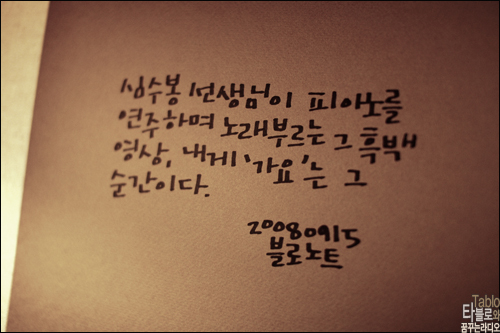 심수봉 선생님이 피아노를
연주하며 노래부르는 그 흑백
영상, 내게 '가요'는 그
순간이다.
20080915
블로노트
Tablo
타블로와
꿈꾸는라디오